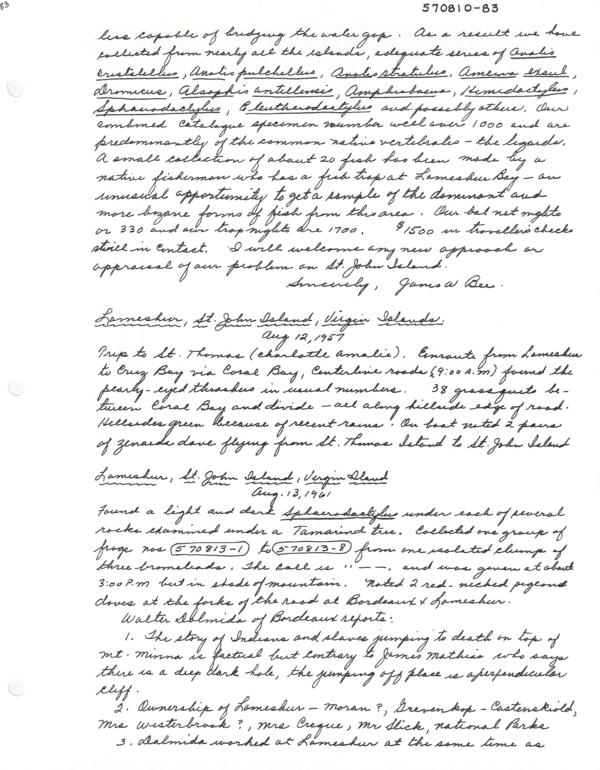 83
570810-83
less capable of bridging the water gap. As a result we have
collected from nearly all the islands, adequate series of Anolis
cristatellus, Anolis pulchellus, Anolis stratulus, Ameiva exsul,
Dromicus, Alsophis antillensis, Amphisbaena, Hemidactylus,
Sphaerodactylus, Eleutherodactylus and possibly others. Our
combined catalogue specimen number well over 1000 and are
predominantly of the common native vertebrates - the lizards.
A small collection of about 20 fish has been made by a
native fisherman who has a fish trap at Lameshur Bay - an
unusual opportunity to get a sample of the dominant and
more bizarre forms of fish from this area. Our bat net nights
or 330 and our trap nights are 1700. $1500 in travellers checks
still in contact. I will welcome any new approach or
appraisal of our problem on St. John Island.
Sincerely, James W Bee.
Lameshur, St. John Island, Virgin Islands.
Aug 12, 1957
Trip to St. Thomas (Charlotte Amalie). Enroute from Lameshur
to Cruz Bay via Coral Bay, Centerline roads (9:00 A.M) found the
pearly-eyed thrashers in usual numbers. 38 grassquits be-
tween Coral Bay and divide - all along hillside edge of road.
Hillsides green because of recent rains. On boat noted 2 pairs
of zenaida dove flying from St. Thomas Island to St. John Island
Lameshur, St. John Island, Virgin Island
Aug. 13, 1961
Found a light and dark Sphaerodactylus under each of several
rocks examined under a Tamarind tree. Collected one group of
frogs nos 570813-1 to 570813-8 from one isolated clump of
three bromeliads. The call is .. — —. and was given at about
3:00 P.M but in shade of mountain. Noted 2 red-necked pigeons
doves at the forks of the road at Bordeaux & Lameshur.
Walter Dalmida of Bordeaux reports:
1. The story of Indians and slaves jumping to death on top of
Mt. Minna is factual but contrary to James Mathias who says
there is a deep dark hole, the jumping off place is a perpendicular
cliff.
2. Ownership of Lameshur - Moran?, Grevenkop - Castenskiold,
Mrs Westerbrook?, Mrs Creque, Mr Slick, National Parks
3. Dalmida worked at Lameshur at the same time as